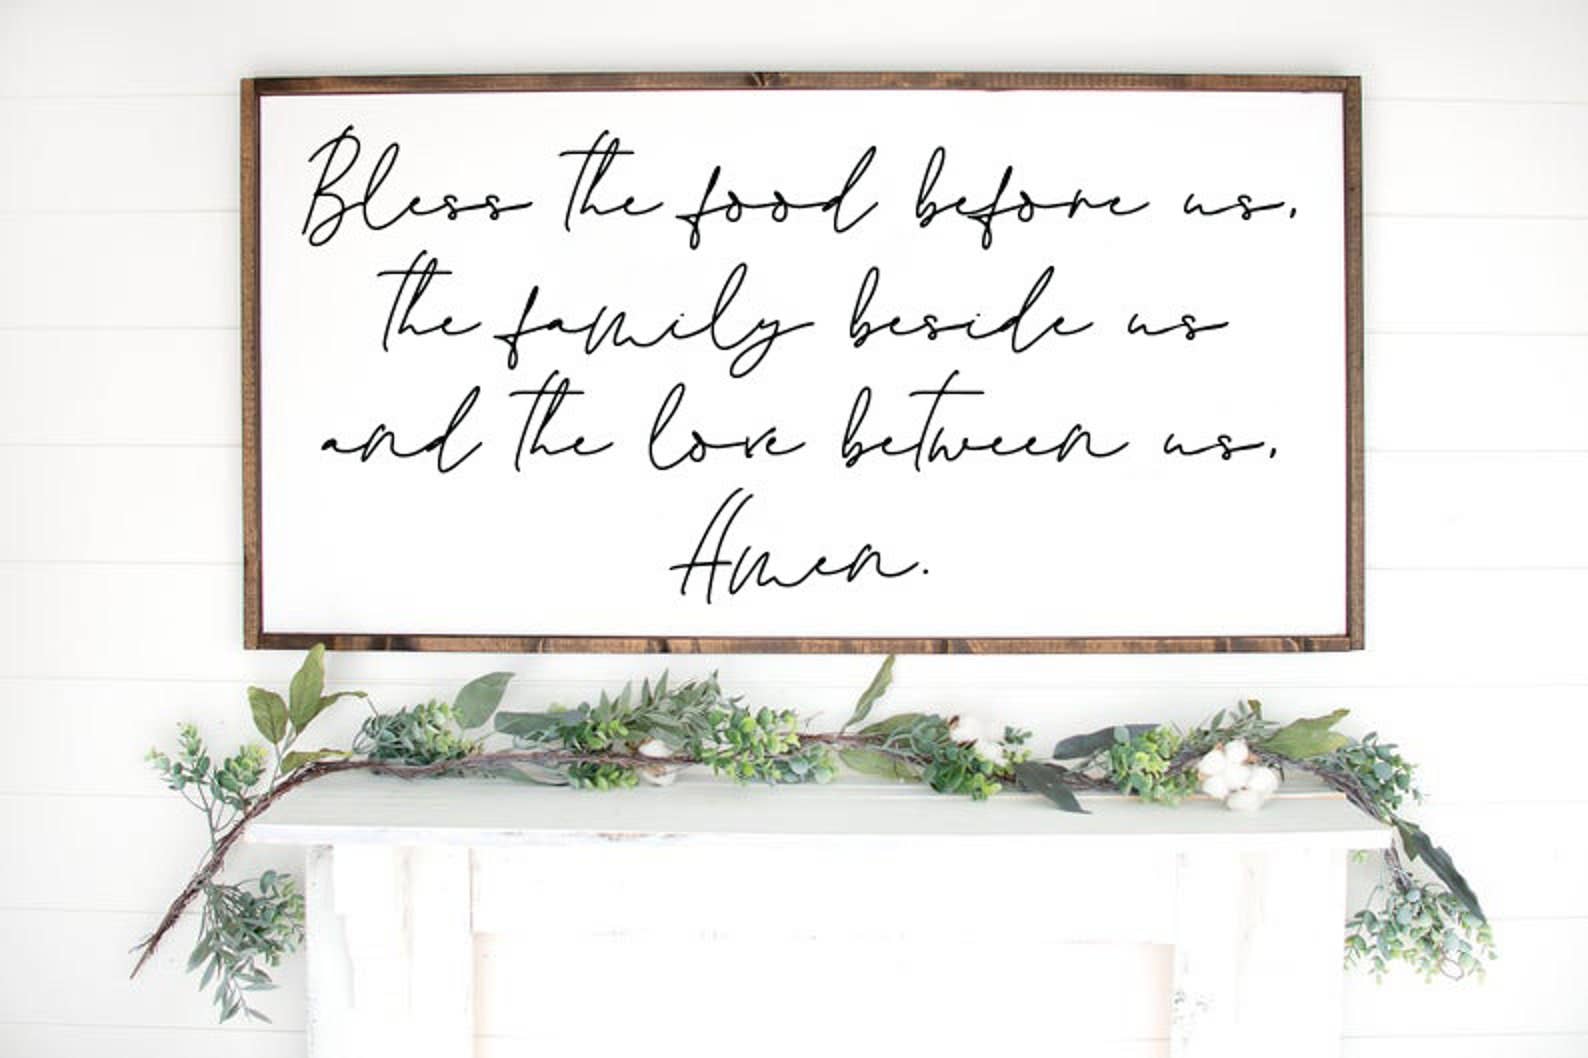 Bless the food before us,
the family beside us
and the love between us,
Amen.